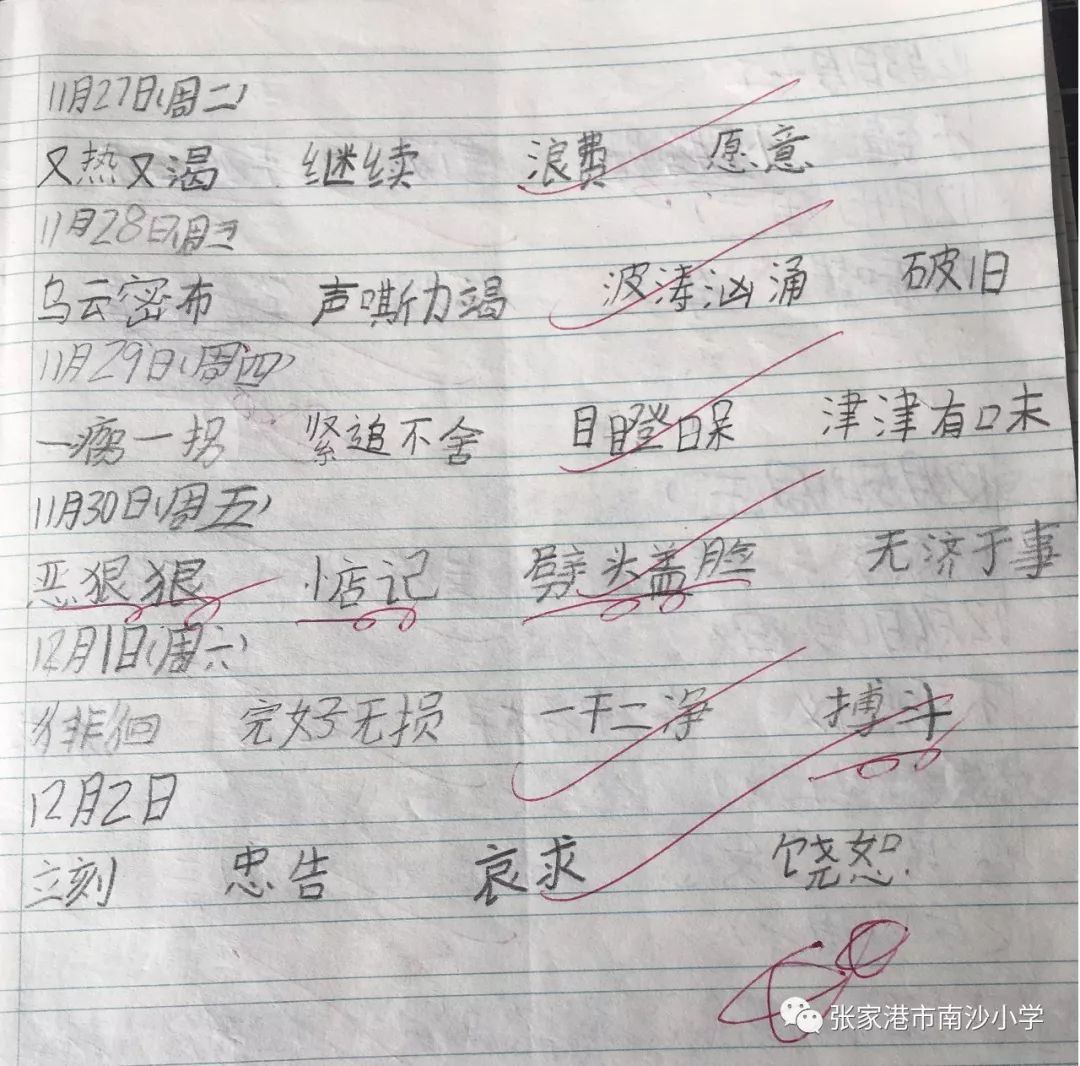 11月27日(周二)
又热又渴 继续 浪费 愿意
11月28日(周三)
乌云密布 声嘶力竭 波涛汹涌 破旧
11月29日(周四)
一瘸一拐 紧追不舍 目瞪口呆 津津有味
11月30日(周五)
恶狠狠 惦记 劈头盖脸 无济于事
12月1日(周六)
徘徊 完好无损 一干二净 搏斗
12月2日
立刻 忠告 哀求 饶恕.
张家港市南沙小学